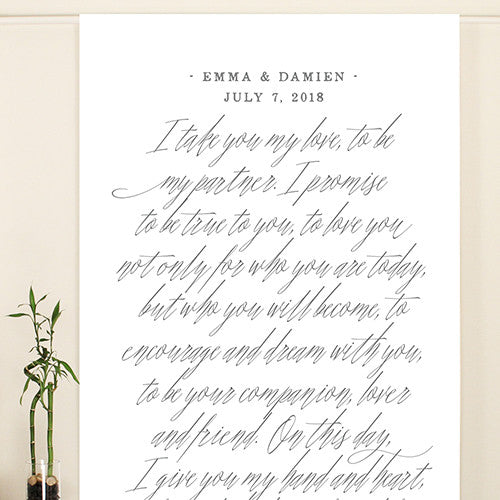 · EMMA & DAMIEN ·
JULY 7, 2018
I take you my love, to be
my partner. I promise
to be true to you, to love you
not only for who you are today,
but who you will become, to
encourage and dream with you,
to be your companion, lover
and friend. On this day,
I give you my hand and heart,